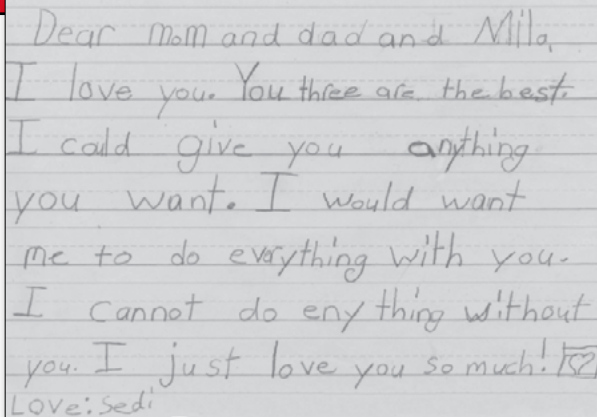 Dear mom and dad and Mila,
I love you. You three are the best.
I could give you anything
you want. I would want
me to do evrything with you.
I cannot do eny thing without
you. I just love you so much!
Love: Sedi